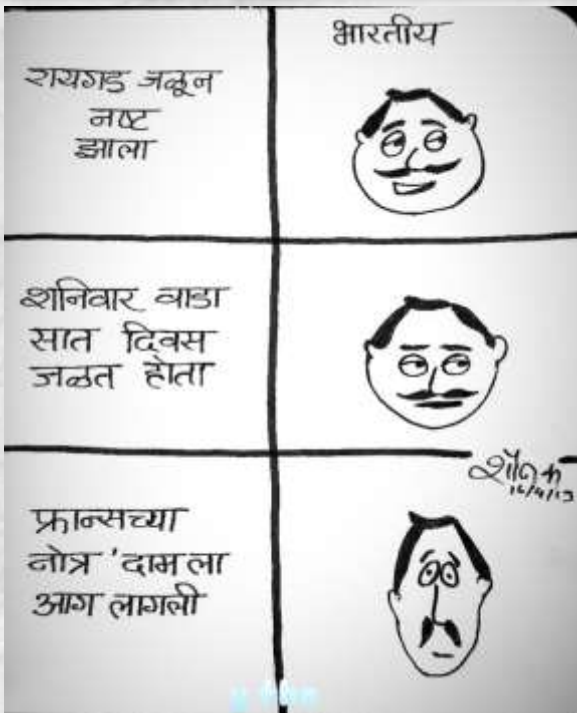 भारतीय
रायगड जळून
नष्ट
झाला
शनिवार वाडा
सात दिवस
जळत होता
शौनक
फ्रान्सच्या
नोत्र 'दामला
आग लागली